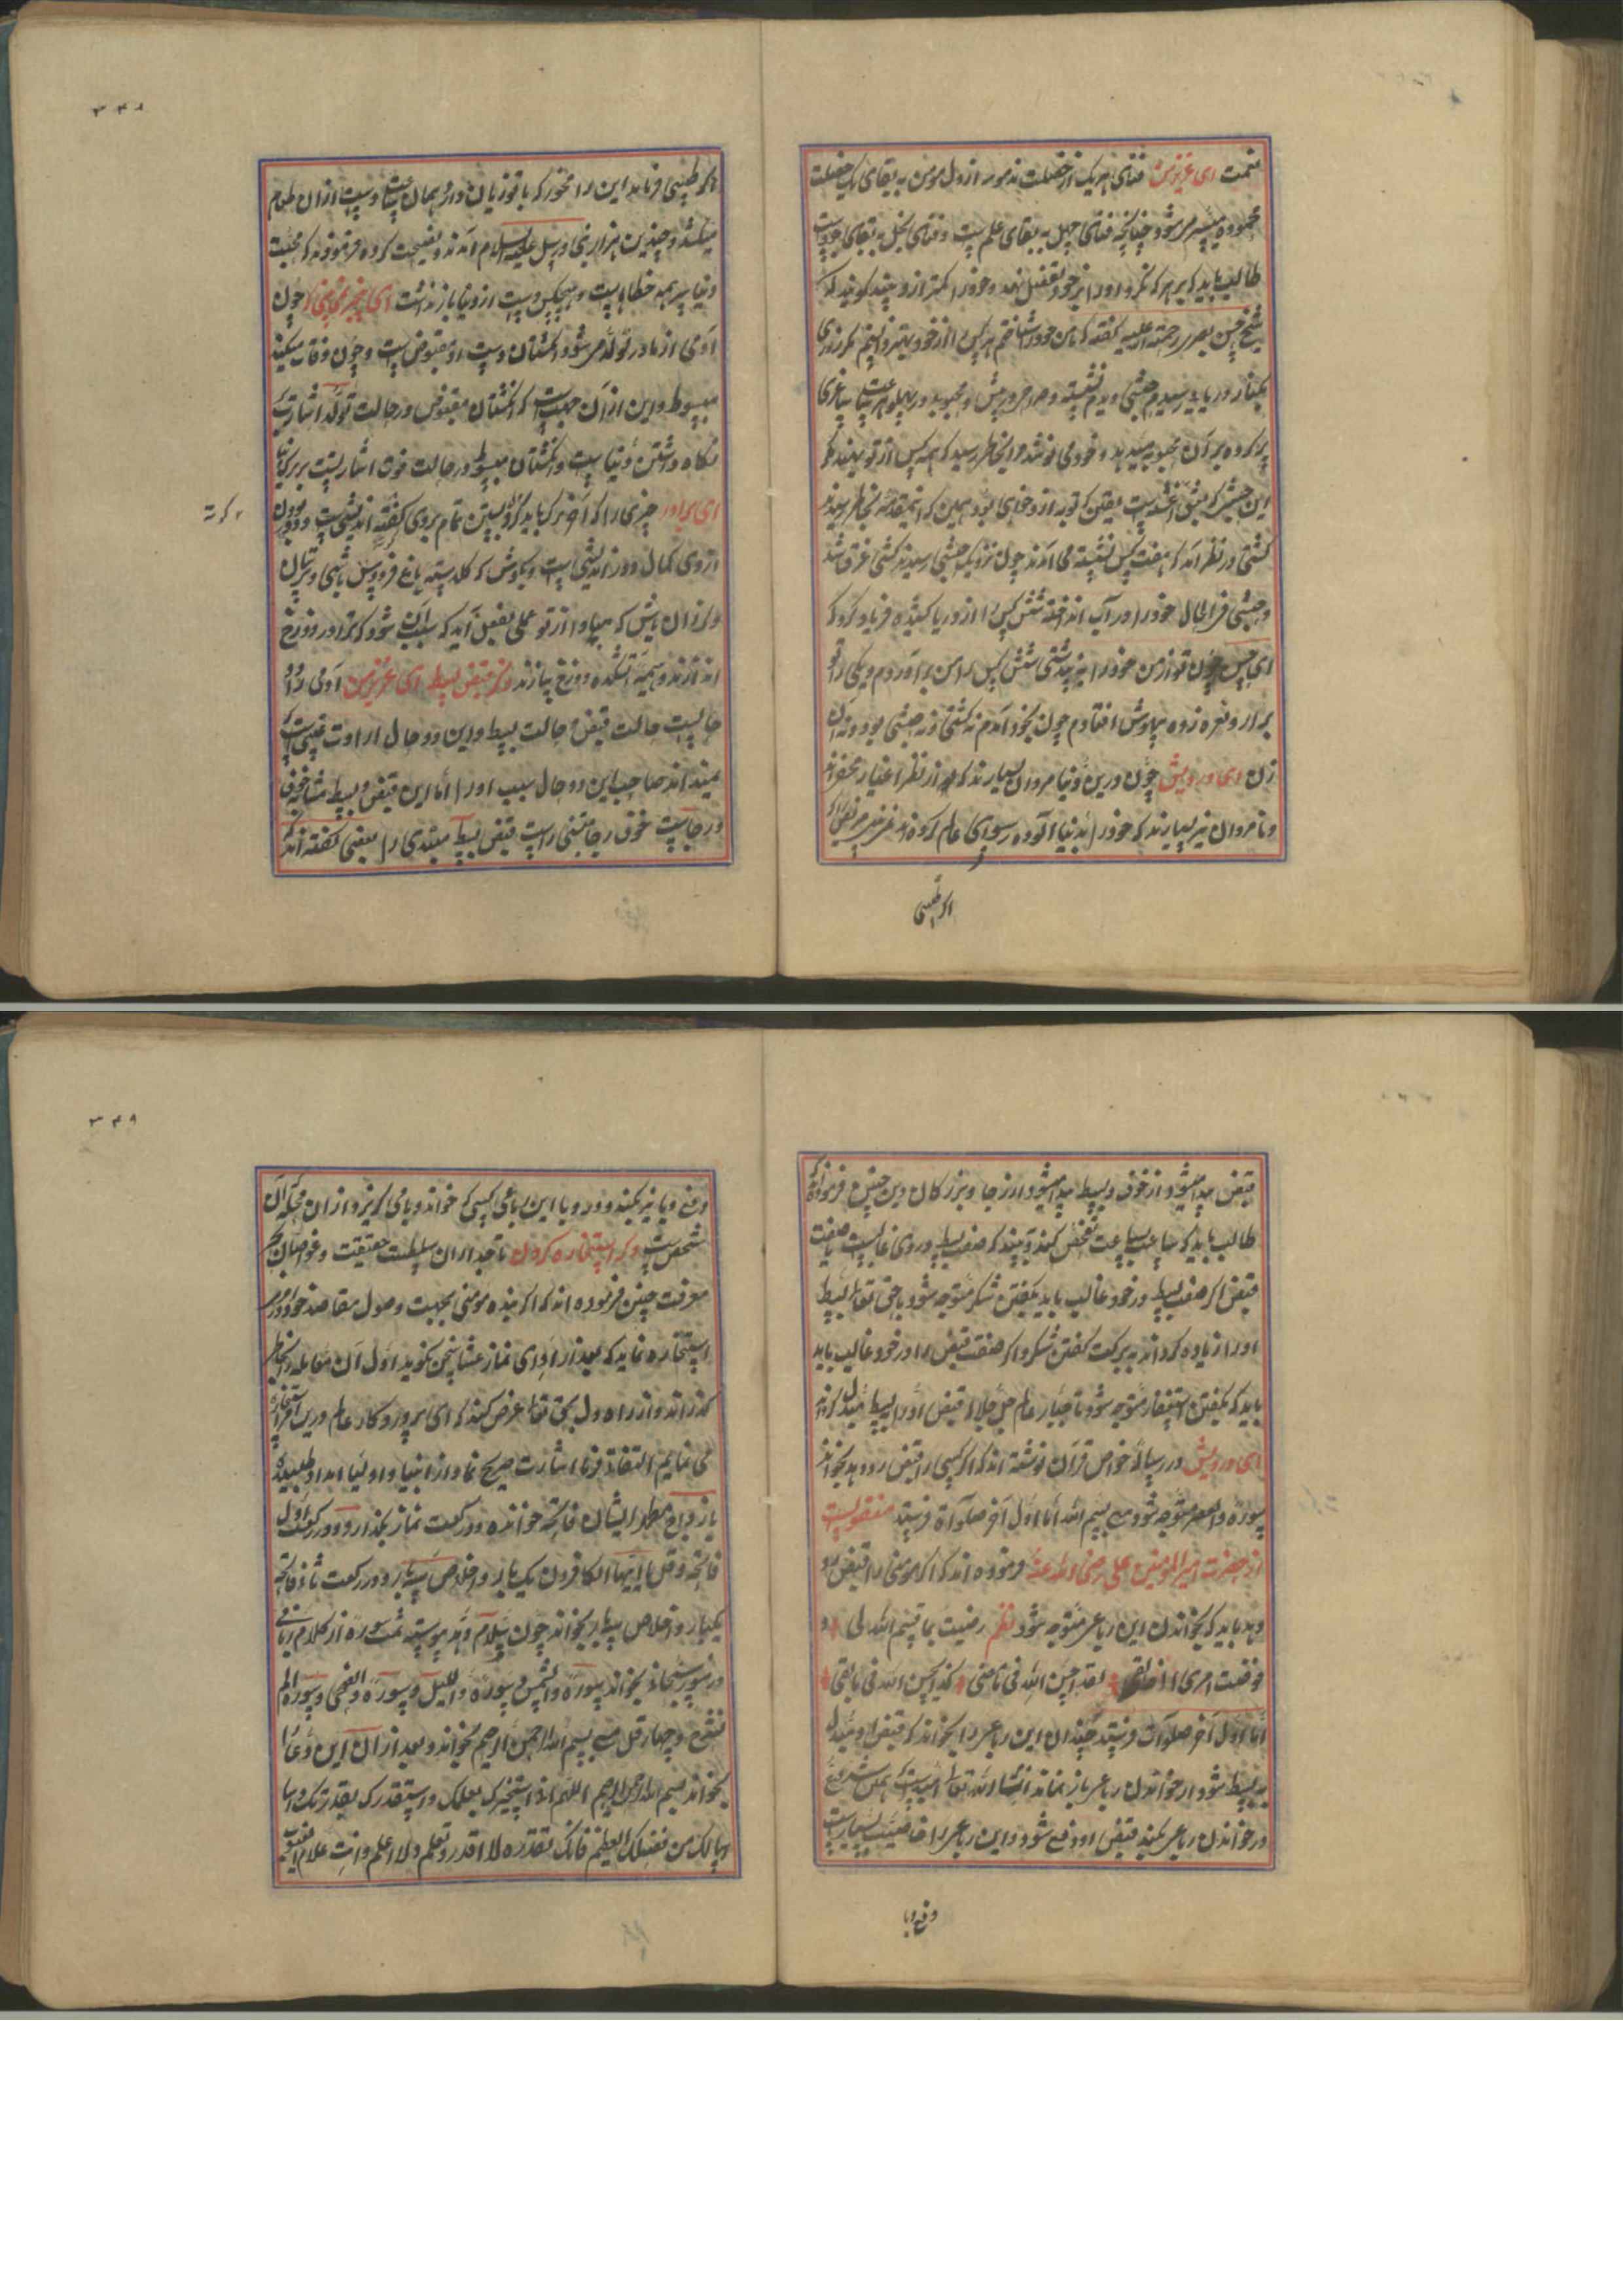 نعمت ای عزیز من فنای هر یک از خصلت مذمومه از دل مومن به بقای یک خصلت
محموده میسر میشود چنانچه فنای جهل به بقای علم ست و فنای بخل به بقای جود ست
طالب باید که بر هر که نگرد او را بر خود تفضیل نهد و خود را کمتر از و بیند گویند که
شیخ حسن بصری رحمة الله علیه گفته که من خود را شناختم هر کس را از خود بهتر دانستم مگر روزی
بکنار دریا رسیدم حبشی دیدم نشسته و در پیش و محبوبه در پهلو هر ساعت ساغری
پر کرده بر آن محبوبه میدهد و خود می نوشد مرا بخاطر رسید که همه کس از تو بهتر مگر
این حبشی که بفسق است یقین که تو به از و خواهی بود همین که این مقدمه بخاطر رسید
کشتی در نظر آمد که هفت کس نشسته می آمدند چون نزدیک حبشی رسیدند کشتی غرق شد
و حبشی فی الحال خود را در آب انداخته شش کس را از دریا کشیده فریاد کرد که
ای حسن چون تو از من خود را به پنداشتی شش کس را من بر آوردم و یکی را تو
برار و نعره زده بیهوش افتادم چون بخود آمدم نه کشتی و نه حبشی بود و نه آن
زن ای درویش چون درین دنیا مردان بسیارند که از نظر اغیار مخفی اند
و نامردان نیز بسیارند که خود را بدنیا آلوده رسوای عالم کرده اند
اگر طبیبی
۳۴۸
اگر طبیبی فرماید این را مخور که با تو زیان دارد همان ساعت دست از ان طعام
میکشد و چندین هزار نبی و رسل علیه السلام آمدند و نصیحت کرده فرمودند که محبت
دنیا سر همه خطاها ست و هیچکس دست از دنیا باز نداشت ای که چون
آدمی از مادر تولد میشود انگشتان دست او مقبوض ست و چون وفات میکند
مبسوط و این از آن جهت است که انگشتان مقبوض در حالت تولد اشارت به
نگاه داشتن دنیا ست و انگشتان مبسوط در حالت فوت اشارتست بر ترک دنیا
ای برادر چیزی را که آخر ترک باید کرد بستن تمام بروی گفته اند نیستی ست و دور بودن
ازوی کمال دور اندیشی ست و بکوش که گلدسته باغ فردوس باشی و ترسان
و لرزان باش که مبادا از تو عملی بفعل آید که سبب آن شود که ترا در دوزخ
اندازند و هیمه آتشکده دوزخ سازند ذکر قبض بسط ای عزیز من آدمی را دو
حالست حالت قبض و حالت بسط و این دو حال ارادت غیبی ست که
نمیداند صاحب این دو حال سبب او را اما این قبض و بسط مشابه خوف
و رجا ست خوف رجا مبتنی راست قبض بسط مبتدی را بعضی گفته اند که
قبض پیدا میشود از خوف و بسط پیدا میشود از رجا و بزرگان دین چنین فرموده اند که
طالب باید که ساعت بساعت تفحص کند و بیند که صفت بسط در وی غالبست یا صفت
قبض اگر صفت بسط در خود غالب یابد بگفتن شکر متوجه شود تا حق تعالی بسط
او را زیاده گرداند به برکت گفتن شکر و اگر صفت قبض را در خود غالب یابد
باید که بگفتن استغفار متوجه شود تا جبار عالم جل جلاله قبض او را ببسط مبدل گرداند
ای درویش در رساله خواص قرآن نوشته اند که اگر کسی را قبض رو دهد بخواندن
سوره والعصر متوجه شود بی بسم الله اما اول آخر صلواة فرستد منقولست
از حضرت امیر المومنین علی رضی الله عنه فرموده اند که اگر مومنی را قبض رو
دهد باید که بخواندن این رباعی متوجه شود نظم رضیت بما قسم الله لی و
فوضت امری الی خالقی لقد احسن الله فی ما مضی کذا یحسن الله فی ما بقی
اما اول آخر صلوات فرستد چندان این رباعی را بخواند که قبض او مبدل
به بسط شود از خواندن رباعی باز نماند انشاء الله تعالی امیدست که همین که شروع
در خواندن رباعی بکند قبض او دفع شود و این رباعی را خاصیت بسیار است
دفع وبا
۳۴۹
دفع وبا نیز بکند و دور وبا این رباعی کسی که خواند وبا می گریزد از ان محله که آن
شخص ست ذکر استخاره کردن تاجداران سلطنت حقیقت و غواصان بحر
معرفت چنین فرموده اند که اگر بنده مومنی بجهت وصول مقاصد خود در امری
استخاره نماید که بعد از ادای نماز عشا سخن نگوید اول آن مقابله را بخاطر
گذراند و از راه دل بحق تعالی عرض کند که ای پروردگار عالم درین امر استخاره
می نمایم التفات فرما اشارت صریح نما و از انبیا و اولیا امداد طلبیده
بارواح مطهر ایشان فاتحه خوانده دو رکعت نماز بگذارد و در رکعت اول
فاتحه و قل یا ایها الکافرون یک بار و اخلاص سه بار و در رکعت ثانی فاتحه
یکبار و اخلاص سه بار بخواند چون سلام دهد پیوسته هشت سوره از کلام ربانی
در سر سجاده بخواند سوره والشمس و سوره واللیل و سوره والضحی و سوره الم
نشرح و چهار قل بی بسم الله الرحمن الرحیم بخواند و بعد از ان این دعا را
بخواند بسم الله الرحمن الرحیم اللهم انی استخیرک بعلمک و استقدرک بقدرتک و اسا
اسالک من فضلک العظیم فانک تقدر و لا اقدر و تعلم و لا اعلم و انت علام الغیوب